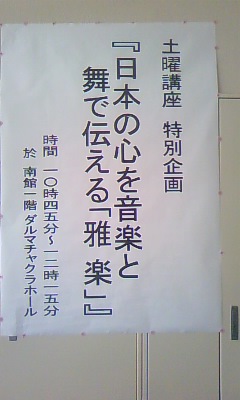 土曜講座 特別企画
『日本の心を音楽と
舞で伝える「雅 楽」』
時間 一〇時四五分~一二時一五分
於 南館一階 ダルマチャクラホール